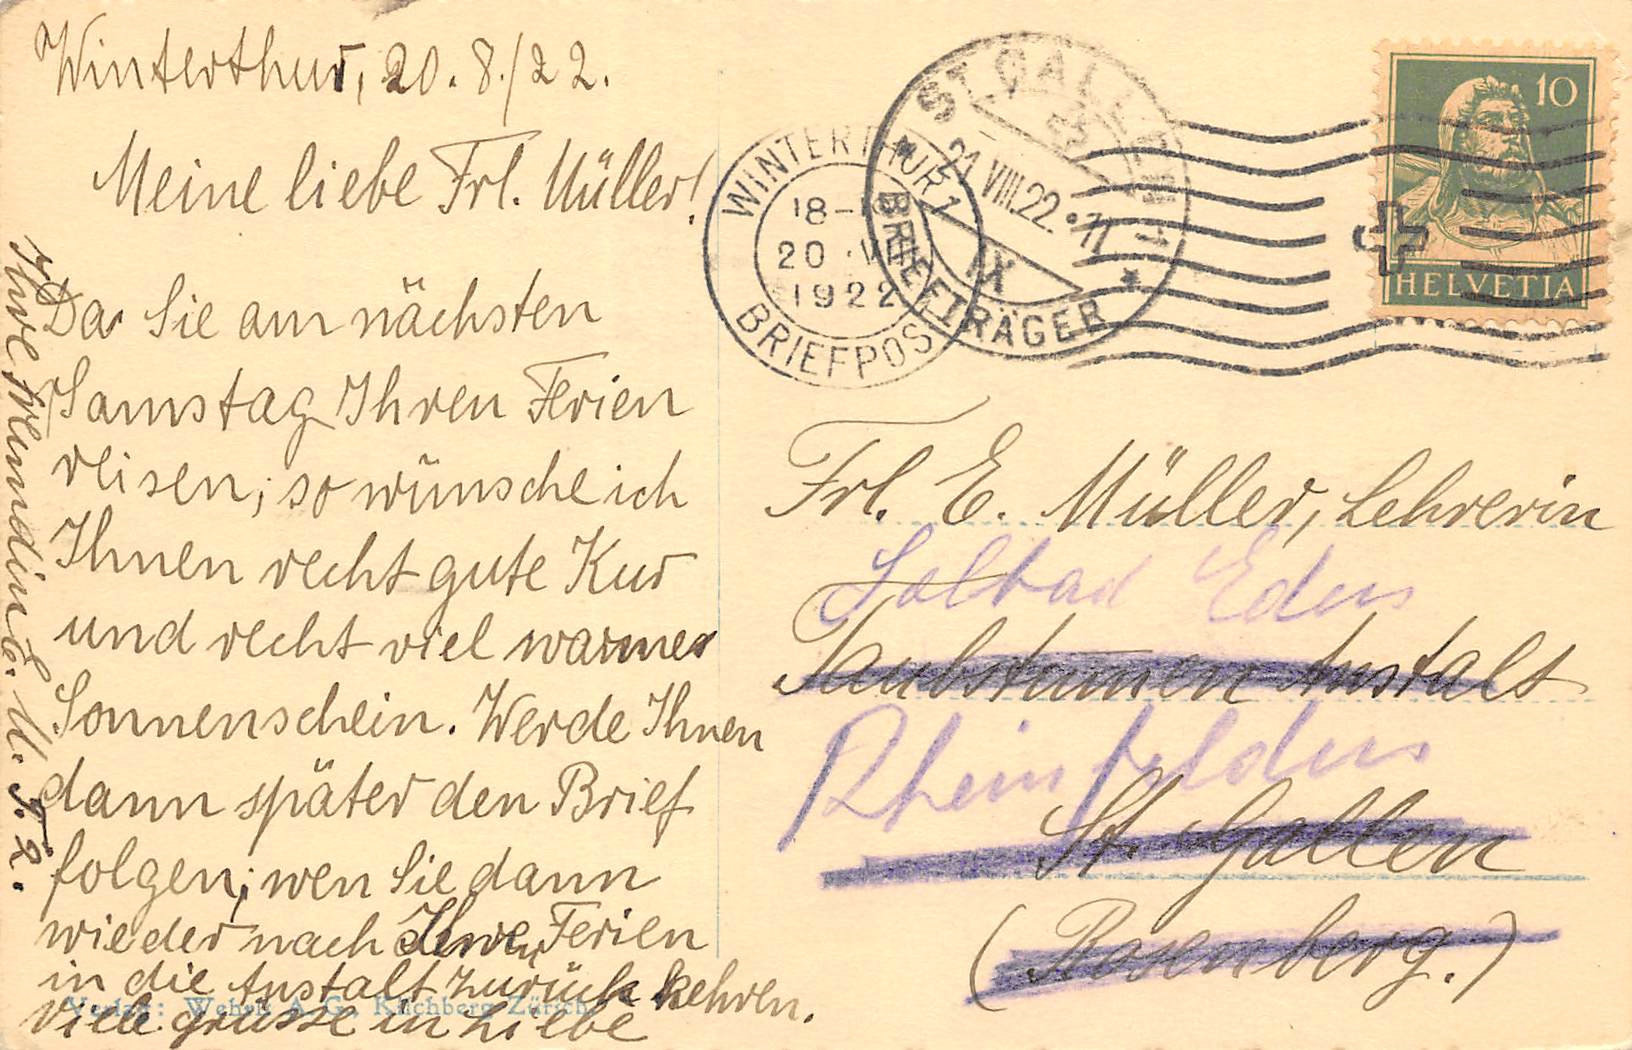 Winterthur, 20. 8./22.
Meine liebe Frl. Müller!
Da Sie am nächsten
Samstag Ihren Ferien
reisen, so wünsche ich
Ihnen recht gute Kur
und recht viel warmer
Sonnenschein. Werde Ihnen
dann später den Brief
folgen, wen Sie dann
wieder nach Ihren Ferien
in die Anstalt zurück kehren.
Viele grüsse in Liebe
Ihre Freundin E. M.
Verlag: Wehrli A.G., Kilchberg Zürich
WINTERTHUR 1
18-
20.VIII
1922
BRIEFPOST
ST. GALLEN 1
21.VIII.22.-11
IX
BRIEFTRÄGER
10
HELVETIA
Frl. E. Müller, Lehrerin
Solbad Eden
Taubstummen Anstalt
Rheinfelden
St. Gallen
(Rosenberg.)